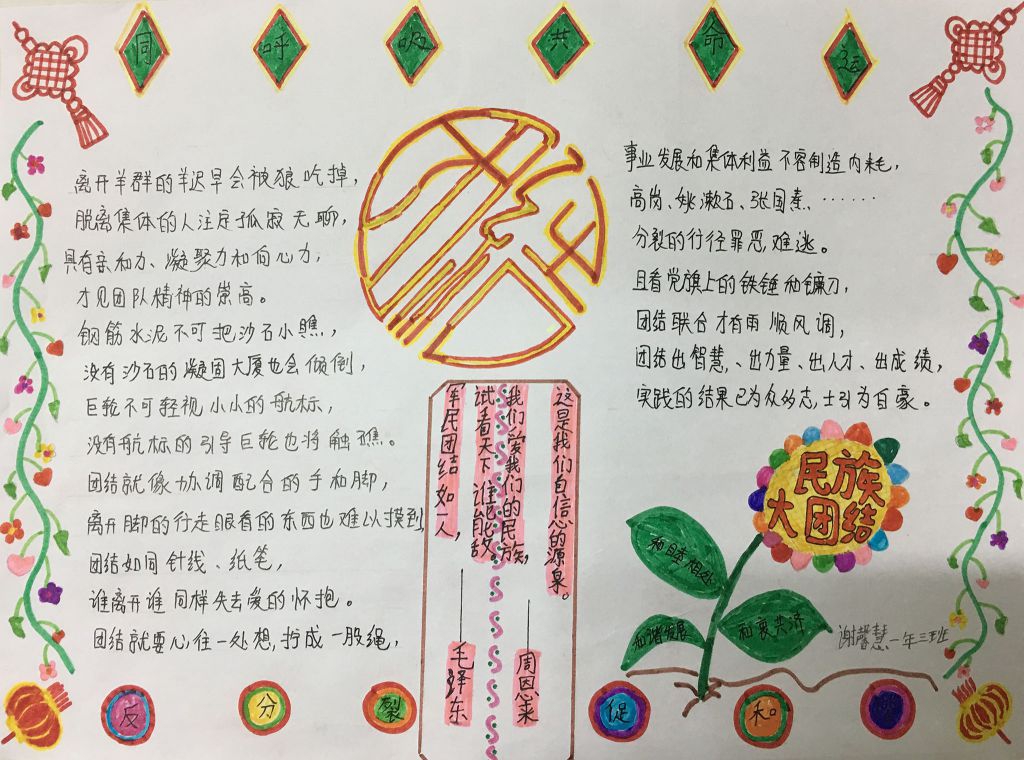 同呼吸共命运
离开羊群的羊迟早会被狼吃掉，
脱离集体的人注定孤寂无聊，
具有亲和力、凝聚力和向心力，
才见团队精神的崇高。
钢筋水泥不可把沙石小瞧，
没有沙石的凝固大厦也会倾倒，
巨轮不可轻视小小的航标，
没有航标的引导巨轮也将触礁。
团结就像协调配合的手和脚，
离开脚的行走眼看的东西也难以摸到，
团结如同针线、纸笔，
谁离开谁同样失去爱的怀抱。
团结就要心往一处想，拧成一股绳，
事业发展和集体利益不容制造内耗，
高岗、姚漱石、张国焘、······
分裂的行径罪恶难逃。
且看党旗上的铁锤和镰刀，
团结联合才有雨顺风调，
团结出智慧、出力量、出人才、出成绩，
实践的结果已为众多的志士引为自豪。
这是我们自信心的源泉。
我们爱我们的民族，
——周恩来
试看天下谁能敌。
军民团结如一人，
——毛泽东
民族
大团结
和睦相处
和谐发展
和衷共济
谢馨慧一年三班
反分裂
促和